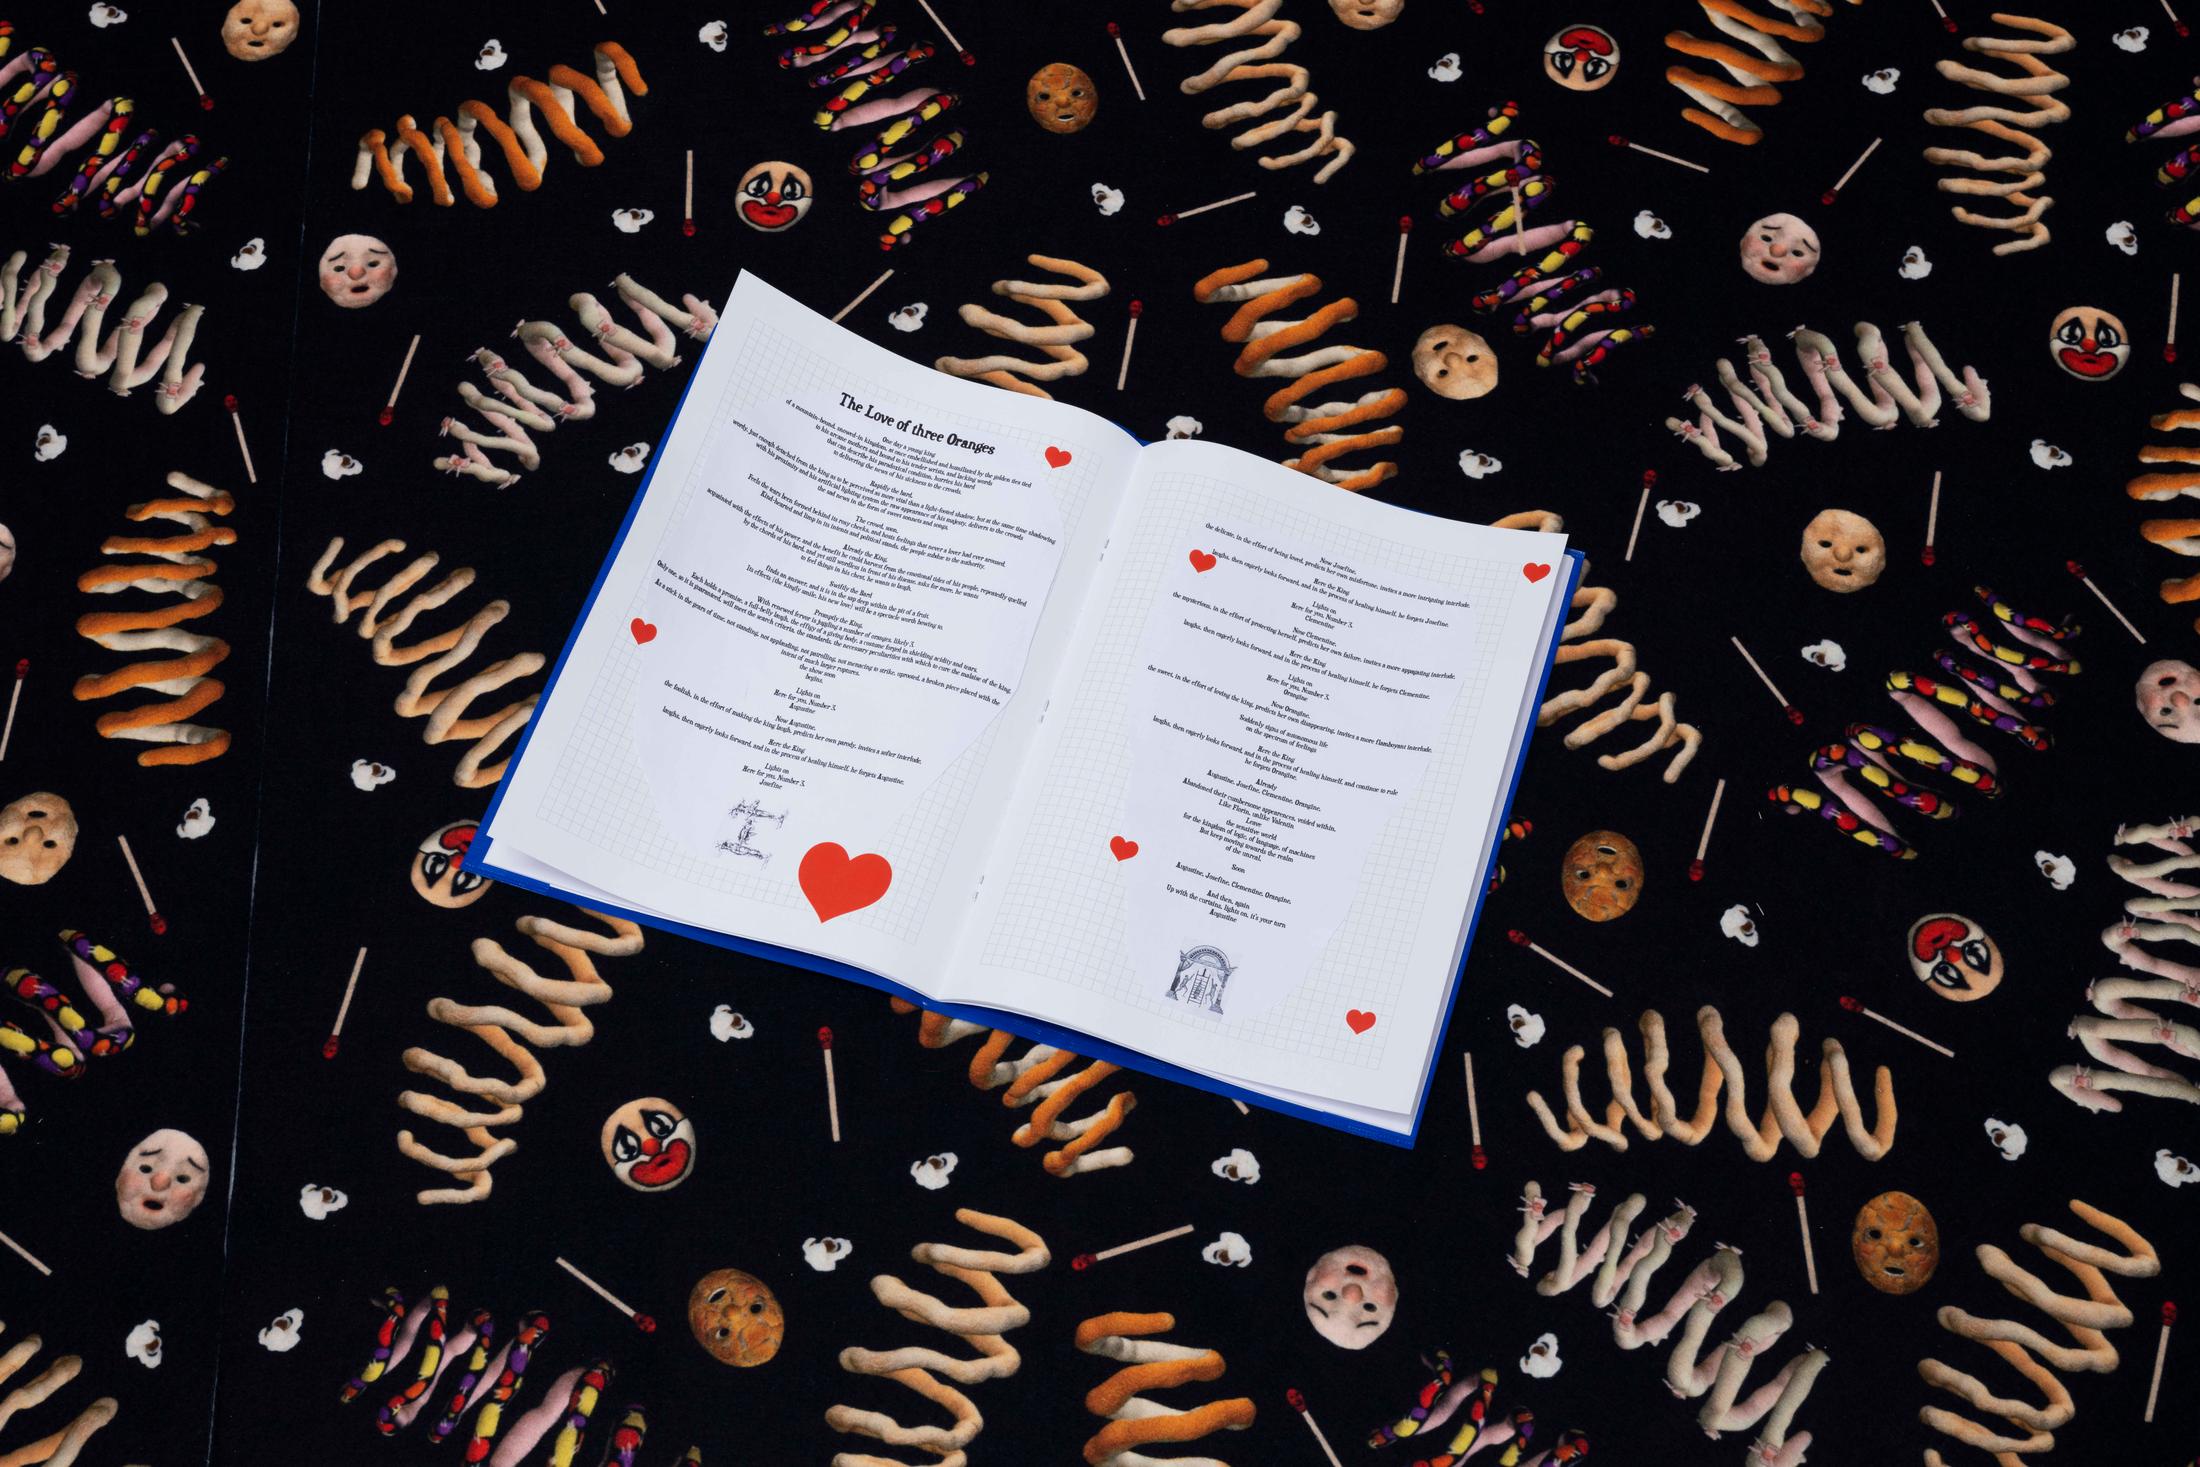 The Love of three Oranges
One day a young king
of a mountain-bound, snowed-in kingdom, at once embellished and humiliated by the golden ties tied
to his arcane mothers and bound to his tender wrists, and lacking words
that can describe his paradoxical condition, hurries his bard
to delivering the news of his sickness to the crowds.
Rapidly the bard,
wordy, just enough detached from the king as to be perceived as more vital than a light-footed shadow, but at the same time shadowing
with his proximity and his artificial lighting system the raw appearance of his majesty, delivers to the crowds
the sad news in the form of sweet sonnets and songs.
The crowd, soon,
Feels the tears been formed behind its rosy cheeks, and hosts feelings that never a lover had ever aroused.
Kind-hearted and limp in its intents and political stands, the people subdue to the authority.
Already the King,
acquainted with the effects of his power, and the benefit he could harvest from the emotional tides of his people, repeatedly quelled
by the chords of his bard, and yet still wordless in front of his disease, asks for more, he wants
to feel things in his chest, he wants to laugh.
Swiftly the Bard
finds an answer, and it is in the sap deep within the pit of a fruit.
Its effects (the kingly smile, his new love) will be a spectacle worth bowing to.
Promptly the King,
With renewed fervor is juggling a number of oranges, likely 3.
Each holds a promise, a full-belly laugh, the effigy of a giving body, a costume forged in shielding acidity and tears.
Only one, so it is guaranteed, will meet the search criteria, the standards, the necessary peculiarities with which to cure the malaise of the king.
As a stick in the gears of time, not standing, not applauding, not patrolling, not menacing to strike, uprooted, a broken piece placed with the
intent of much larger ruptures,
the show soon
begins.
Lights on
Here for you, Number 3,
Augustine
Now Augustine,
the foolish, in the effort of making the king laugh, predicts her own parody, invites a softer interlude.
Here the King
laughs, then eagerly looks forward, and in the process of healing himself, he forgets Augustine.
Lights on
Here for you, Number 3,
Josefine
Now Josefine,
the delicate, in the effort of being loved, predicts her own misfortune, invites a more intriguing interlude.
Here the King
laughs, then eagerly looks forward, and in the process of healing himself, he forgets Josefine.
Lights on
Here for you, Number 3,
Clementine
Now Clementine,
the mysterious, in the effort of protecting herself, predicts her own failure, invites a more appagating interlude.
Here the King
laughs, then eagerly looks forward, and in the process of healing himself, he forgets Clementine.
Lights on
Here for you, Number 3,
Orangine
Now Orangine,
the sweet, in the effort of loving the king, predicts her own disappearing, invites a more flamboyant interlude.
Suddenly signs of autonomous life
on the spectrum of feelings
Here the King
laughs, then eagerly looks forward, and in the process of healing himself, and continue to rule
he forgets Orangine.
Already
Augustine, Josefine, Clementine, Orangine,
Abandoned their cumbersome appearences, voided within,
Like Florin, unlike Valentin
Leave
the sensitive world
for the kingdom of logic, of language, of machines
But keep moving towards the realm
of the unreal.
Soon
Augustine, Josefine, Clementine, Orangine,
And then, again
Up with the curtains, lights on, it's your turn
Augustine